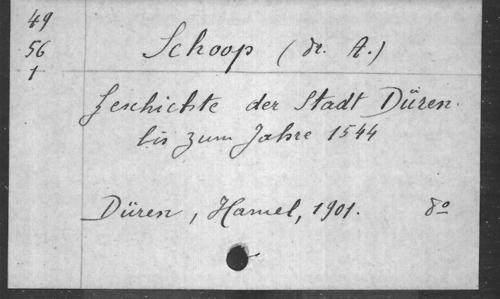 49
56
1
Schoop (Dr. A.)
Geschichte der Stadt Düren.
bis zum Jahre 1544
Düren, Hamel, 1901. 8o